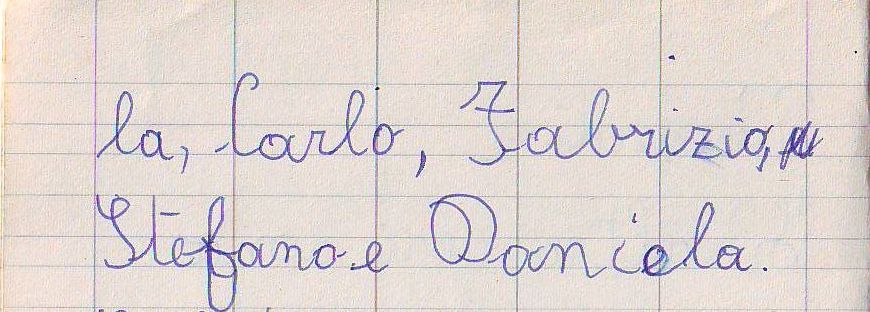 la, Carlo, Fabrizio,
Stefano e Daniela.